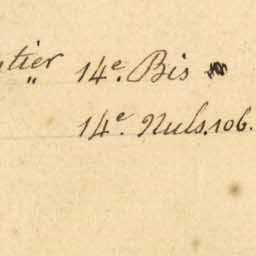 tier 14e. Bis
" 14e. Nuls. 106.